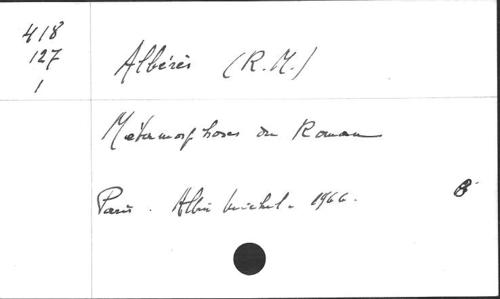 418
127
1
Albérès (R.M.)
Métamorphoses du Roman
Paris. Albin Michel. 1966.
8°